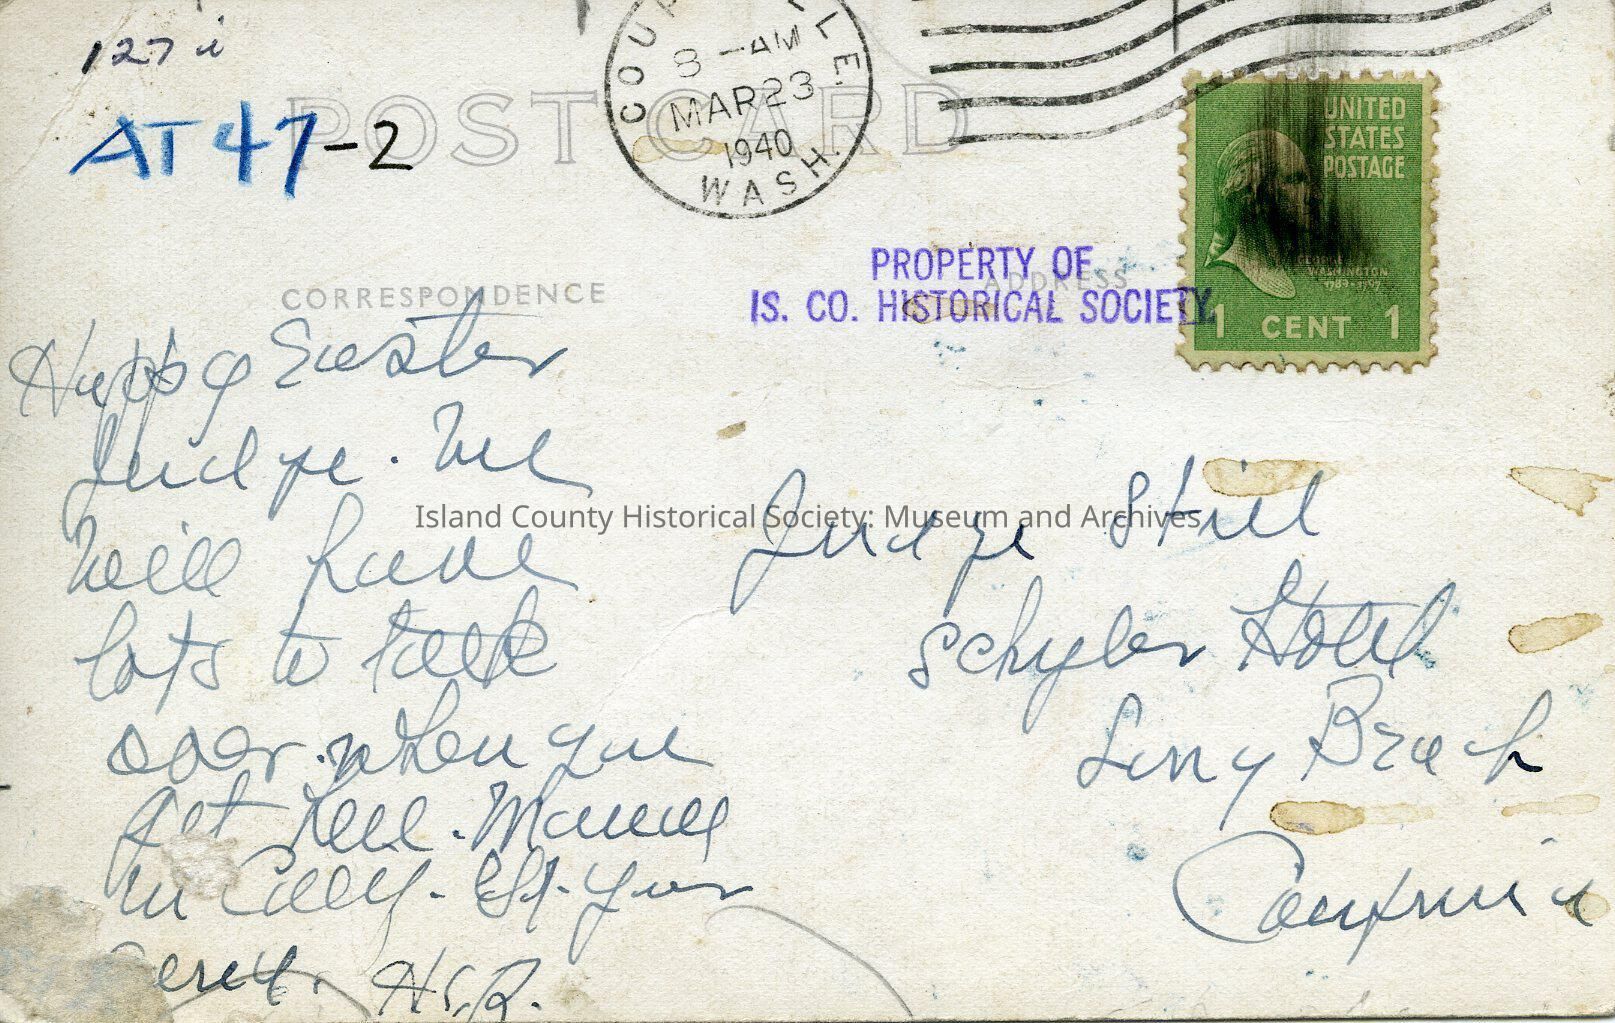 127 i
AT 47-2
POST CARD
COUP VILLE.
8 - AM
MAR 23
1940
WASH.
UNITED
STATES
POSTAGE
GEORGE
WASHINGTON
1789-1797
1 CENT 1
PROPERTY OF
IS. CO. HISTORICAL SOCIETY.
CORRESPONDENCE
ADDRESS
Happy Easter
Judge. We
will have
lots to talk
over. when you
get here.
in Calif. your
H.S.R.
Island County Historical Society: Museum and Archives
Judge Still
Schyler Hotel
Long Beach
California